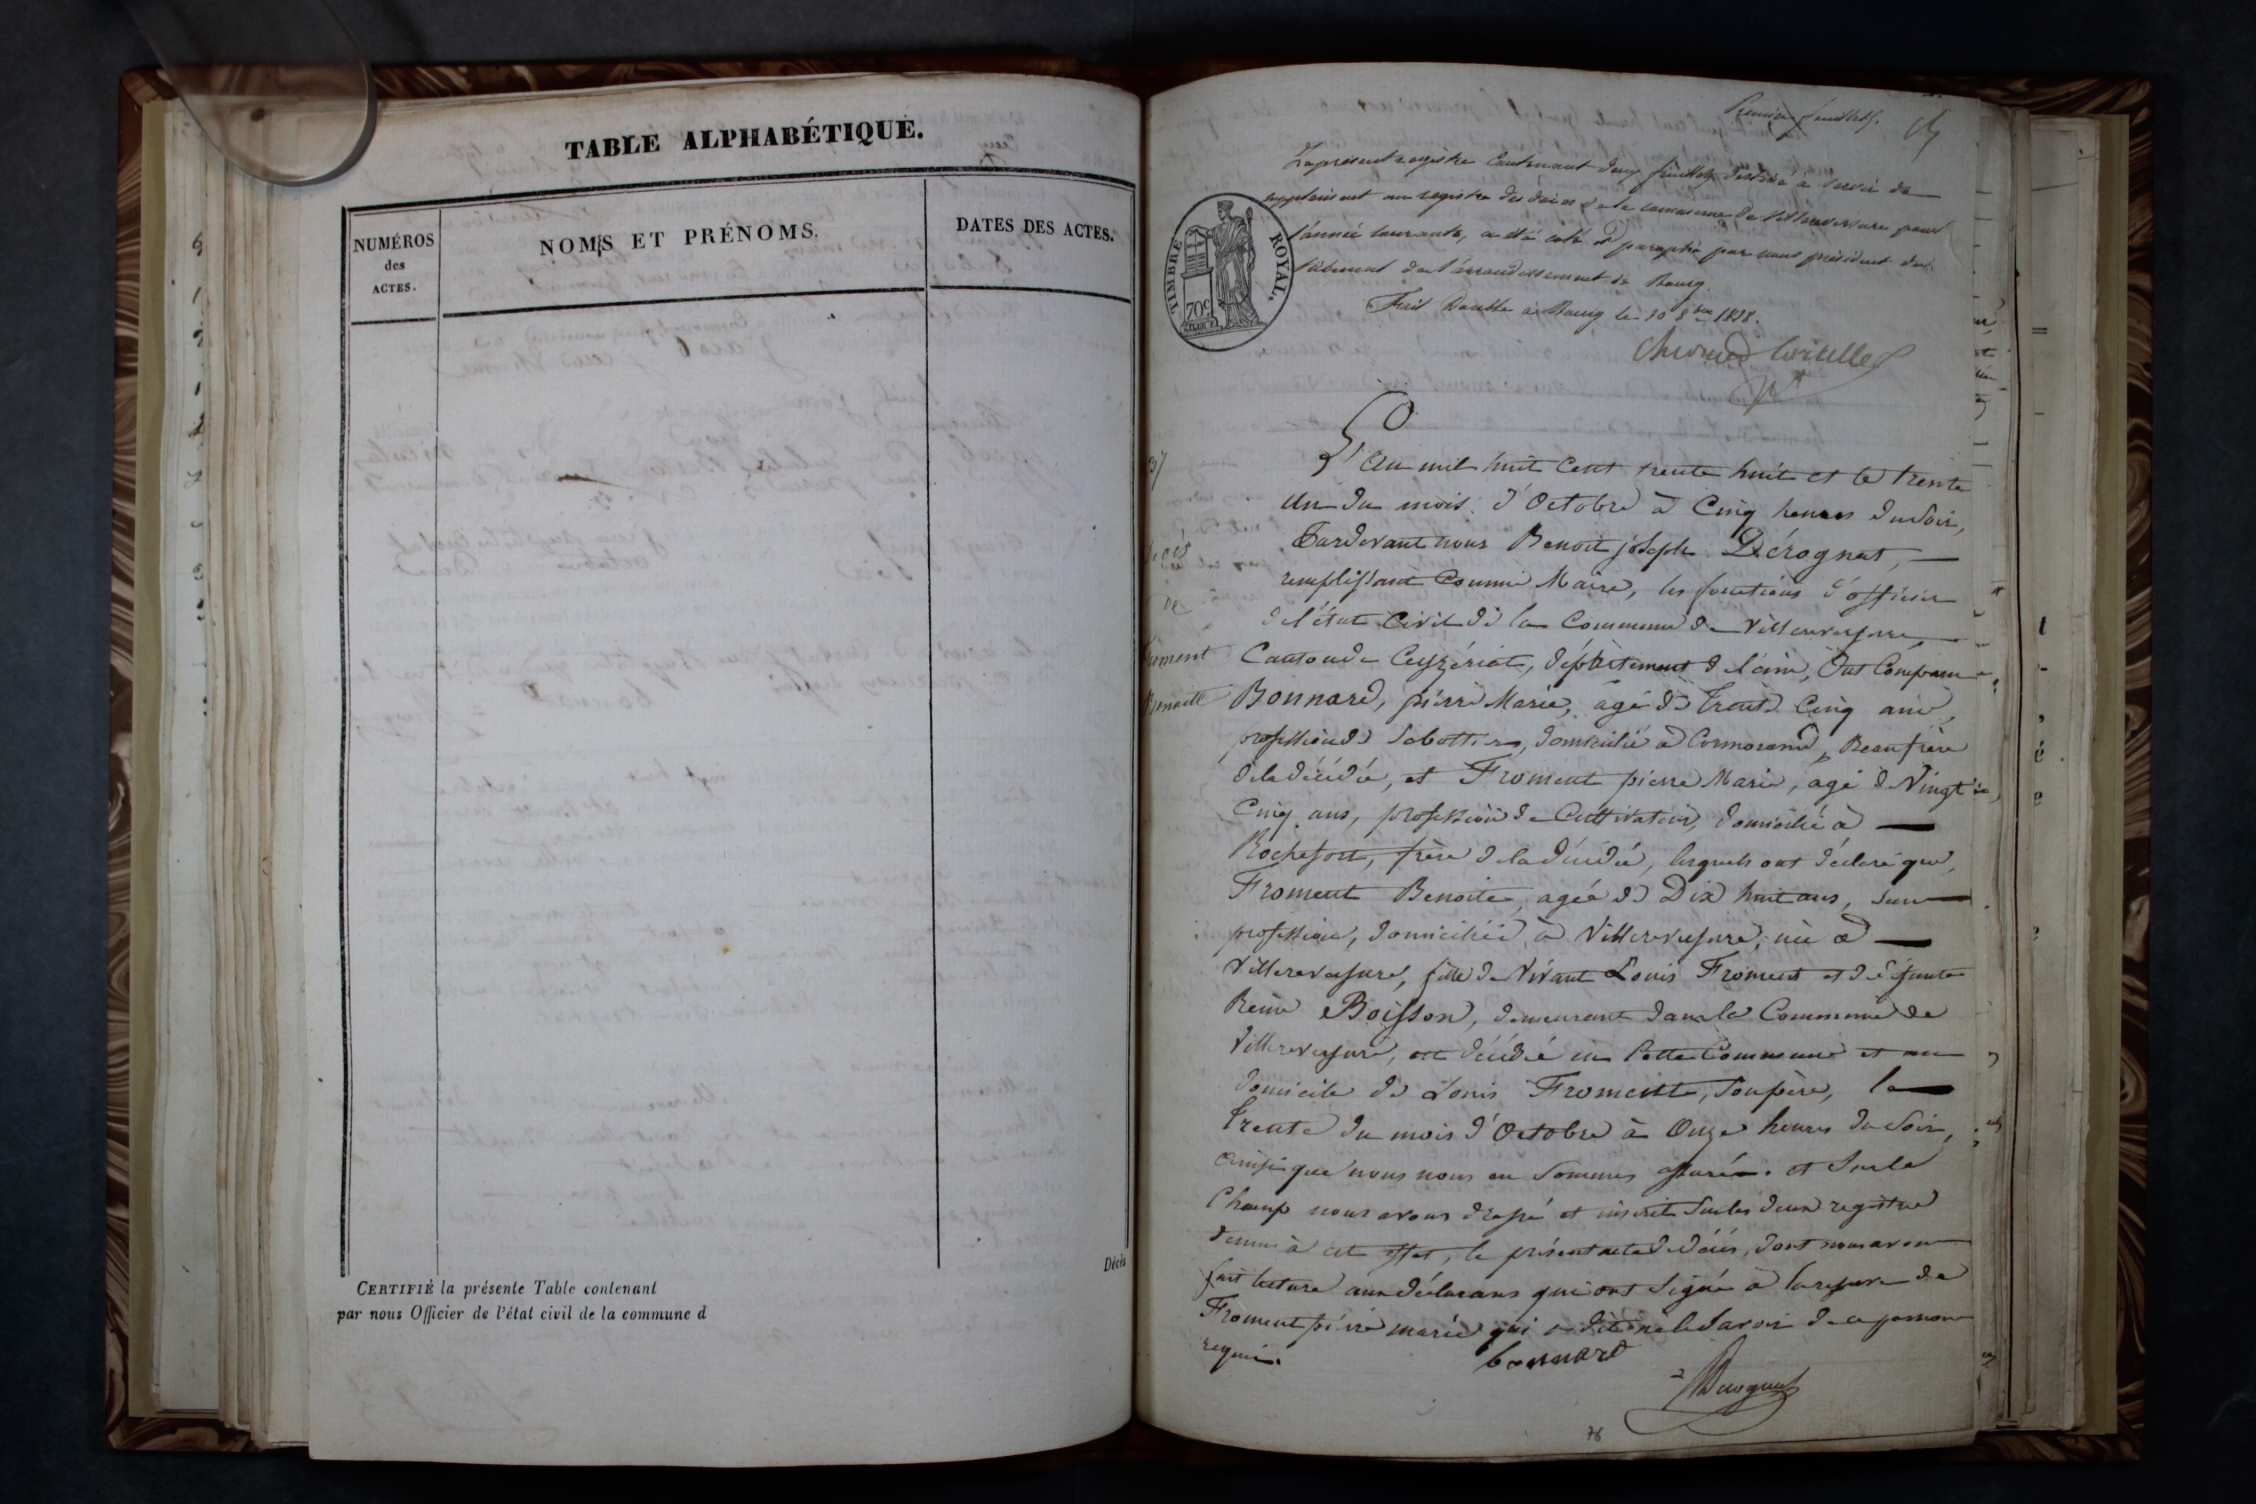 TABLE ALPHABÉTIQUE.
NUMÉROS
des
ACTES.
NOMS ET PRÉNOMS.
DATES DES ACTES.
Décès
CERTIFIÉ la présente Table contenant
par nous Officier de l'état civil de la commune d
Premier feuillet.
Le présent registre contenant deux feuillets destiné à servir de
supplément au registre des décès de la commune de Villereversure pour
l'année courante, a été coté et paraphé par nous président du
tribunal de l'arrondissement de Bourg.
Fait double à Bourg le 10 8bre 1838.
TIMBRE ROYAL.
70c
L'an mil huit cent trente huit et le trente
un du mois d'Octobre à Cinq heures du soir,
Pardevant nous Benoit joseph Dérognat,
remplissant comme Maire, les fonctions d'officier
de l'état Civil de la Commune de Villereversure
Canton de Ceyzériat, département de l'ain, Ont Comparu
Bonnard, pierre Marie, agé de trente Cinq ans,
profession de Sabottier, domicilié à Cormorand, Beaufrère
de la décédée, et Froment pierre Marie, agé de Vingt
Cinq ans, profession de Cultivateur, domicilié à
Rochefort, frère de la décédée, lesquels ont déclaré que
Froment Benoite, agée de Dix huit ans, sans
profession, domiciliée à Villereversure, née à
Villereversure, fille de Vivant Louis Froment et défunte
Reine Boisson, demeurant dans la Commune de
Villereversure, est décédée en Cette Commune et au
domicile de Louis Froment, son père, le
trente du mois d'Octobre à Onze heures du Soir,
ainsi que nous nous en sommes assuré. et Sur le
Champ nous avons dressé et inscrit sur les deux registre
tenus à cet effet, le présent acte de décès, dont nous avons
fait lecture aux déclarans qui ont Signé à la reserve de
Froment pierre marie qui a dit ne le Savoir de ce
requis.
décès
de
Froment
Benoite
bonnard
Dérognat
76